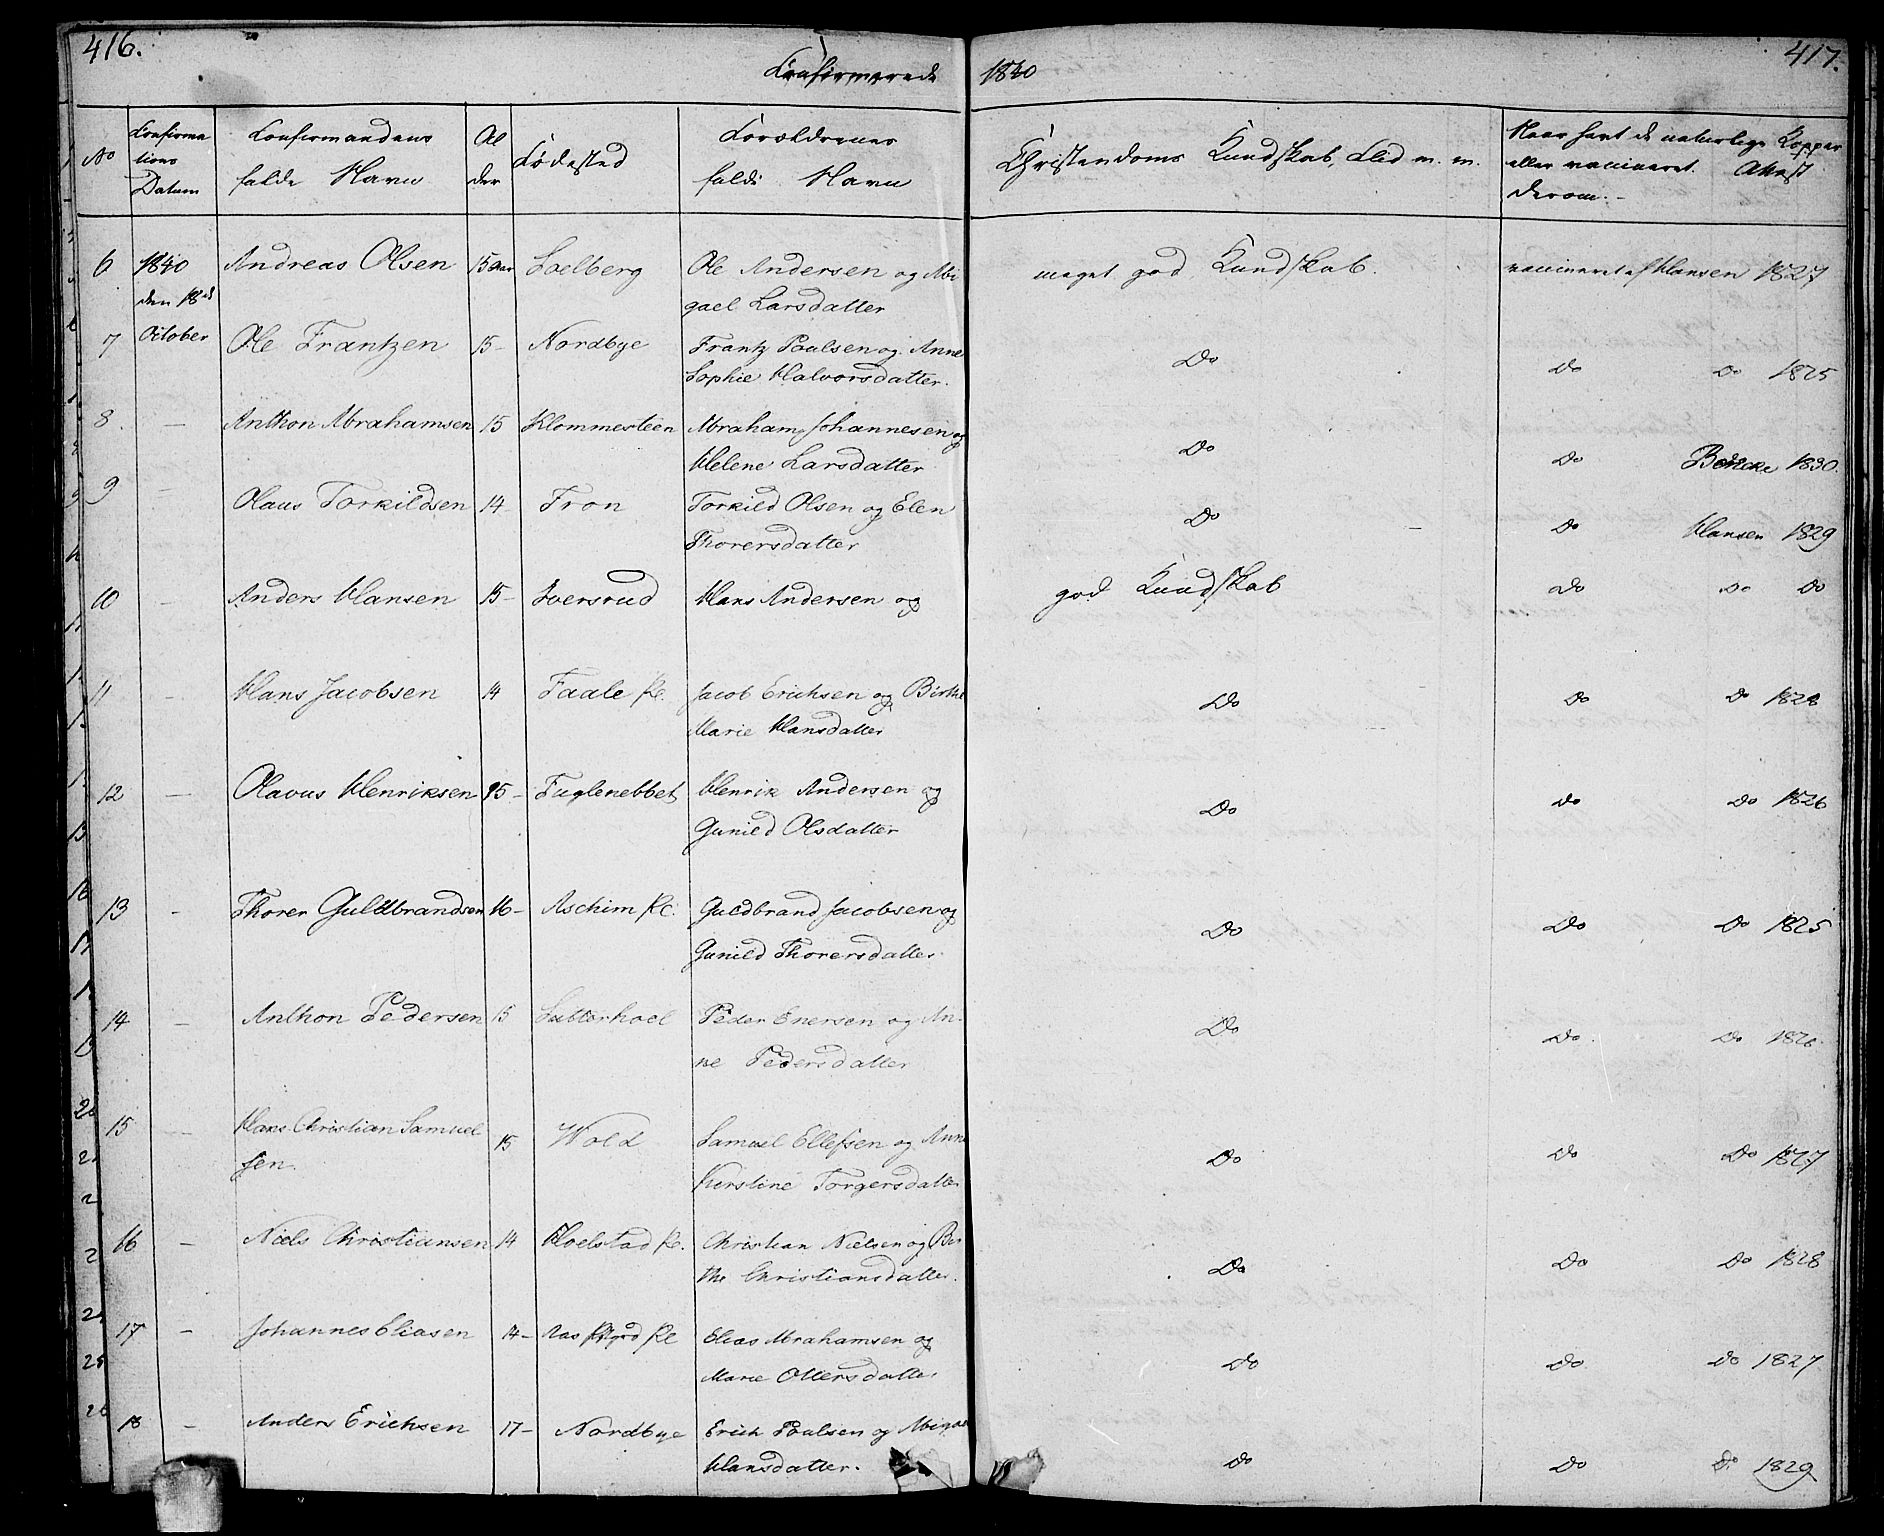 416.
Confirmerede
1840
417.
No
Confirma
tions
Datum
Confirmandens
fulde Navn
Al
der
Fødested
Forældrenes
fulde Navn
Christendoms Kundskab, Flid m. m.
Naar havt de naturlige Kopper
eller vaccineret. Attest
derom.
6 1840 Andreas Olsen 15 Aar Soelberg Ole Andersen og Abi meget god Kundskab. vaccineret af Hansen 1827
den 18de gael Larsdatter
7 October Ole Frantzen 15- Nordbye Frantz Poulsen og Anne Do Do Do 1825
Sophie Halvorsdatter.
8. — Anthon Abrahamsen 15 Klommesteen Abraham Johannesen og Do Do Bencke 1830.
Helene Larsdatter
9 — Olaus Torkildsen 14 Fron Torkild Olsen og Elen Do Do Hansen 1829
Thorersdatter
10 — Anders Hansen 15- Sversrud Hans Andersen og god Kundskab Do Do Do
11 — Hans Jacobsen 14 Faale Kl. Jacob Erichsen og Birthe Do Do Do 1828
Marie Hansdatter
12 — Olavus Henriksen 15- Fuglenebbet Henrik Andersen og Do Do Do 1826
Gunild Olsdatter
13 — Thorer Guldbrandsen 16- Aschim Kl. Guldbrand Jacobsen og Do Do Do 1825
Gunild Thorersdatter.
14 — Anthon Pedersen 15 Sutterhoel Peder Enersen og An- Do Do. Do 1826.
ne Pedersdatter
15 — Hans Christian Samuel 15 Wold Samuel Ellefsen og Anne Do Do Do 1827
sen. Kirstine Torgersdatter
16 — Niels Christiansen 14 Hoelstad Kl. Christian Nielsen og Bir Do Do Do 1828
the Christiansdatter.
17 — Johannes Eliasen 14- Aas Kl Elias Abrahamsen og Do Do Do 1827
Marie Ottersdatter
18 — Anders Erichsen 17- Nordbye Erich Poulsen og Abigael Do Do Do 1829
Hansdatter.